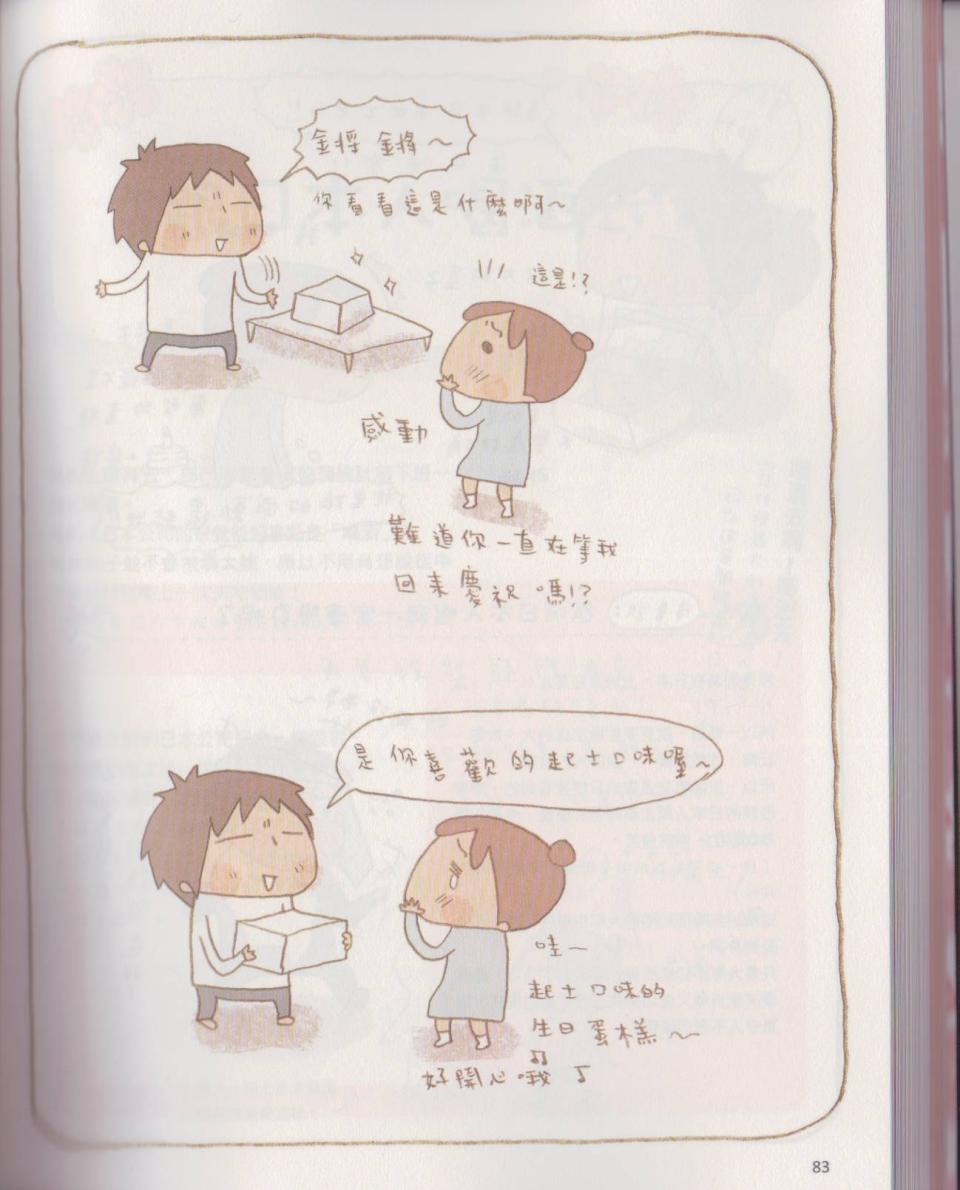 金將 金將～
你看看這是什麼啊～
這是!?
感動
難道你一直在等我
回來慶祝嗎!?
是你喜歡的起士口味喔～
哇～
起士口味的
生日蛋糕～
好開心哦♪
83